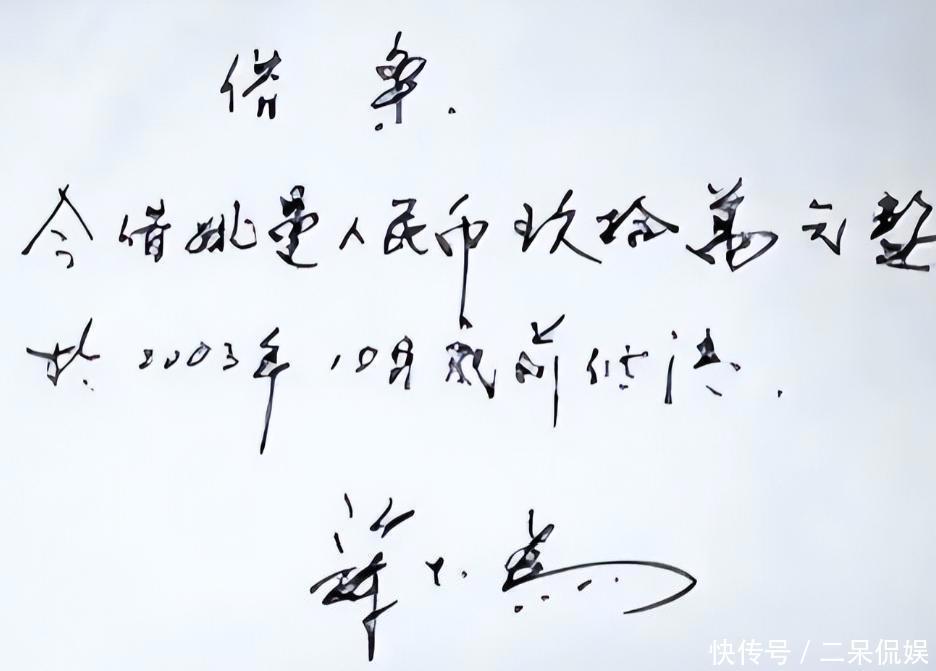 借条.
今借姚曼人民币玖拾万元整
于2003年10月底前付清.
快传号/二呆侃娱